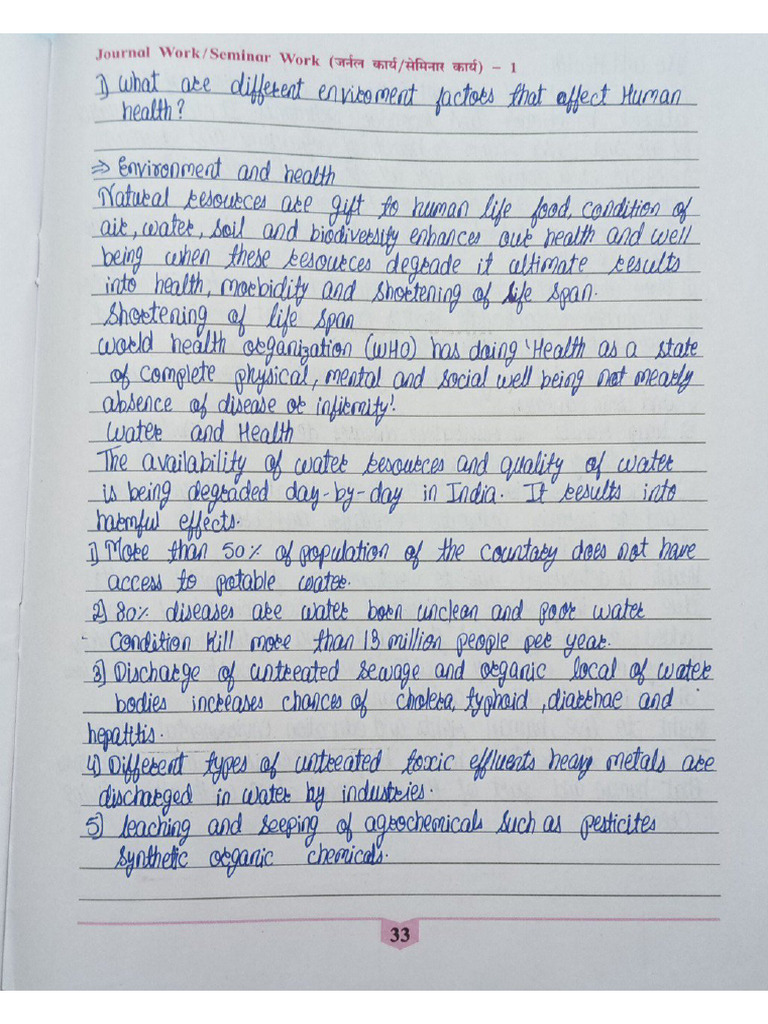 Journal Work/Seminar Work (जर्नल कार्य/सेमिनार कार्य) – 1
1) What are different enviroment factors that affect Human
health?
⇒ Environment and health
Natural resources are gift to human life food, condition of
air, water, soil and biodiversity enhances our health and well
being when these resources degrade it ultimate results
into health, morbidity and shortening of life span.
Shortening of life span
World health organization (WHO) has doing 'Health as a state
of complete physical, mental and social well being not mearly
absence of disease or infirmity'.
Water and Health
The availability of water resources and quality of water
is being degraded day-by-day in India. It results into
harmful effects.
1) More than 50% of population of the countary does not have
access to potable water.
2) 80% diseases are water born unclean and poor water
Condition Kill more than 13 million people per year.
3) Discharge of untreated sewage and organic local of water
bodies increases chances of cholera, typhoid, diarrhae and
hepatitis.
4) Different types of untreated toxic effluents heavy metals are
discharged in water by industries.
5) leaching and seeping of agrochemicals such as pesticites
synthetic organic chemicals.
33